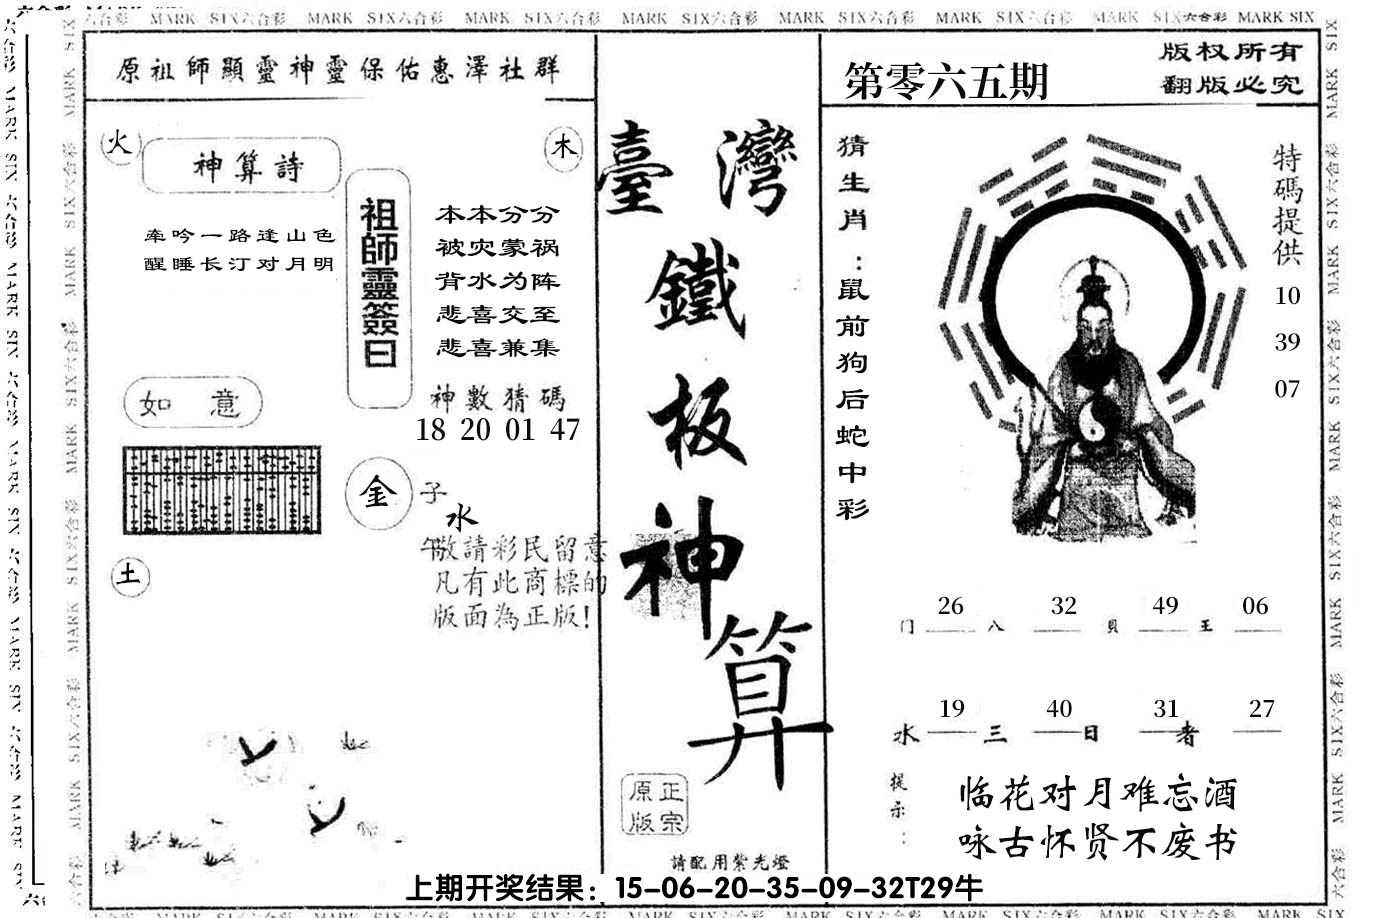 MARK SIX六合彩 MARK SIX六合彩 MARK SIX六合彩 MARK SIX六合彩 MARK SIX六合彩 MARK SIX六合彩 MARK SIX六合彩 MARK SIX
原祖師顯靈神靈保佑惠澤社群
火
神算詩
木
牵吟一路逢山色
醒睡长汀对月明
祖師靈簽曰
本本分分
被灾蒙祸
背水为阵
悲喜交至
悲喜兼集
神數猜碼
18 20 01 47
如意
金
子
水
午
敬請彩民留意
凡有此商標的
版面為正版!
土
臺灣
鐵
板
神
算
正宗
原版
請配用紫光燈
第零六五期
版权所有
翻版必究
猜生肖:鼠前狗后蛇中彩
特碼提供
10
39
07
26 32 49 06
门 八 貝 王
19 40 31 27
水 三 日 者
提示:
临花对月难忘酒
咏古怀贤不废书
上期开奖结果：15-06-20-35-09-32T29牛